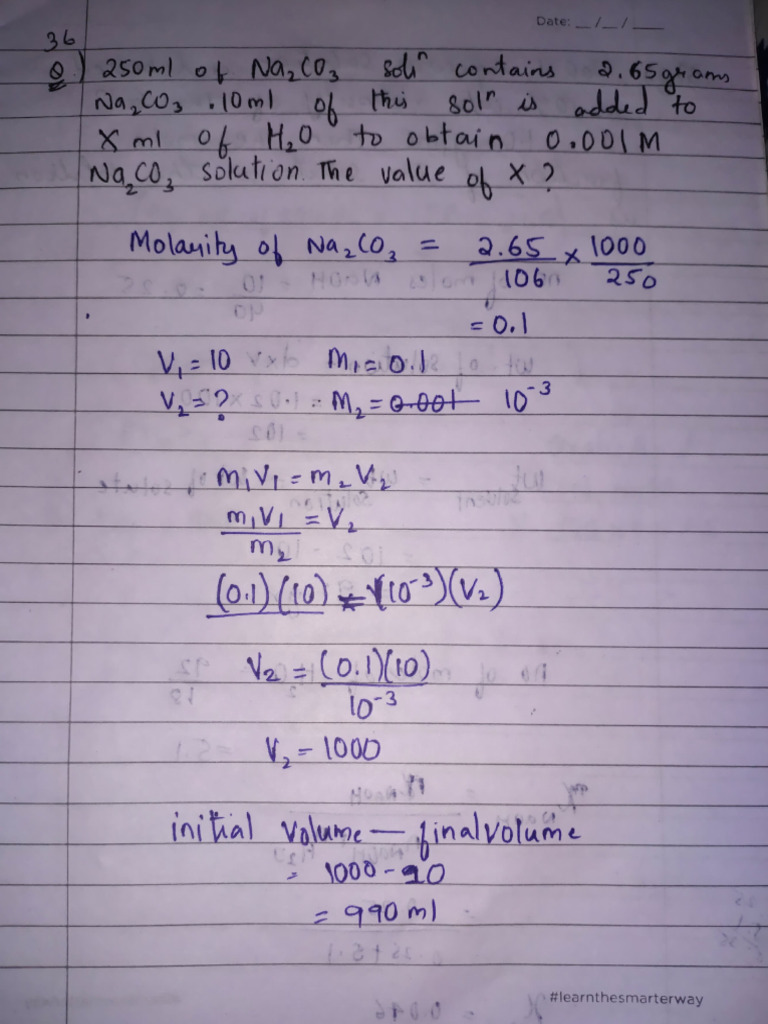 Date: __/__/____
36
Q) 250ml of Na₂CO₃ solⁿ contains 2.65grams
Na₂CO₃ . 10ml of this solⁿ is added to
X ml of H₂O to obtain 0.001M
Na₂CO₃ solution. The value of X ?
Molarity of Na₂CO₃ = 2.65/106 × 1000/250
= 0.1
V₁ = 10 M₁ = 0.1
V₂ = ? M₂ = 0.001 10⁻³
m₁V₁ = m₂V₂
m₁V₁/m₂ = V₂
(0.1)(10) = (10⁻³)(V₂)
V₂ = (0.1)(10)/10⁻³
V₂ = 1000
initial volume — final volume
= 1000 - 10
= 990 ml
#learnthesmarterway